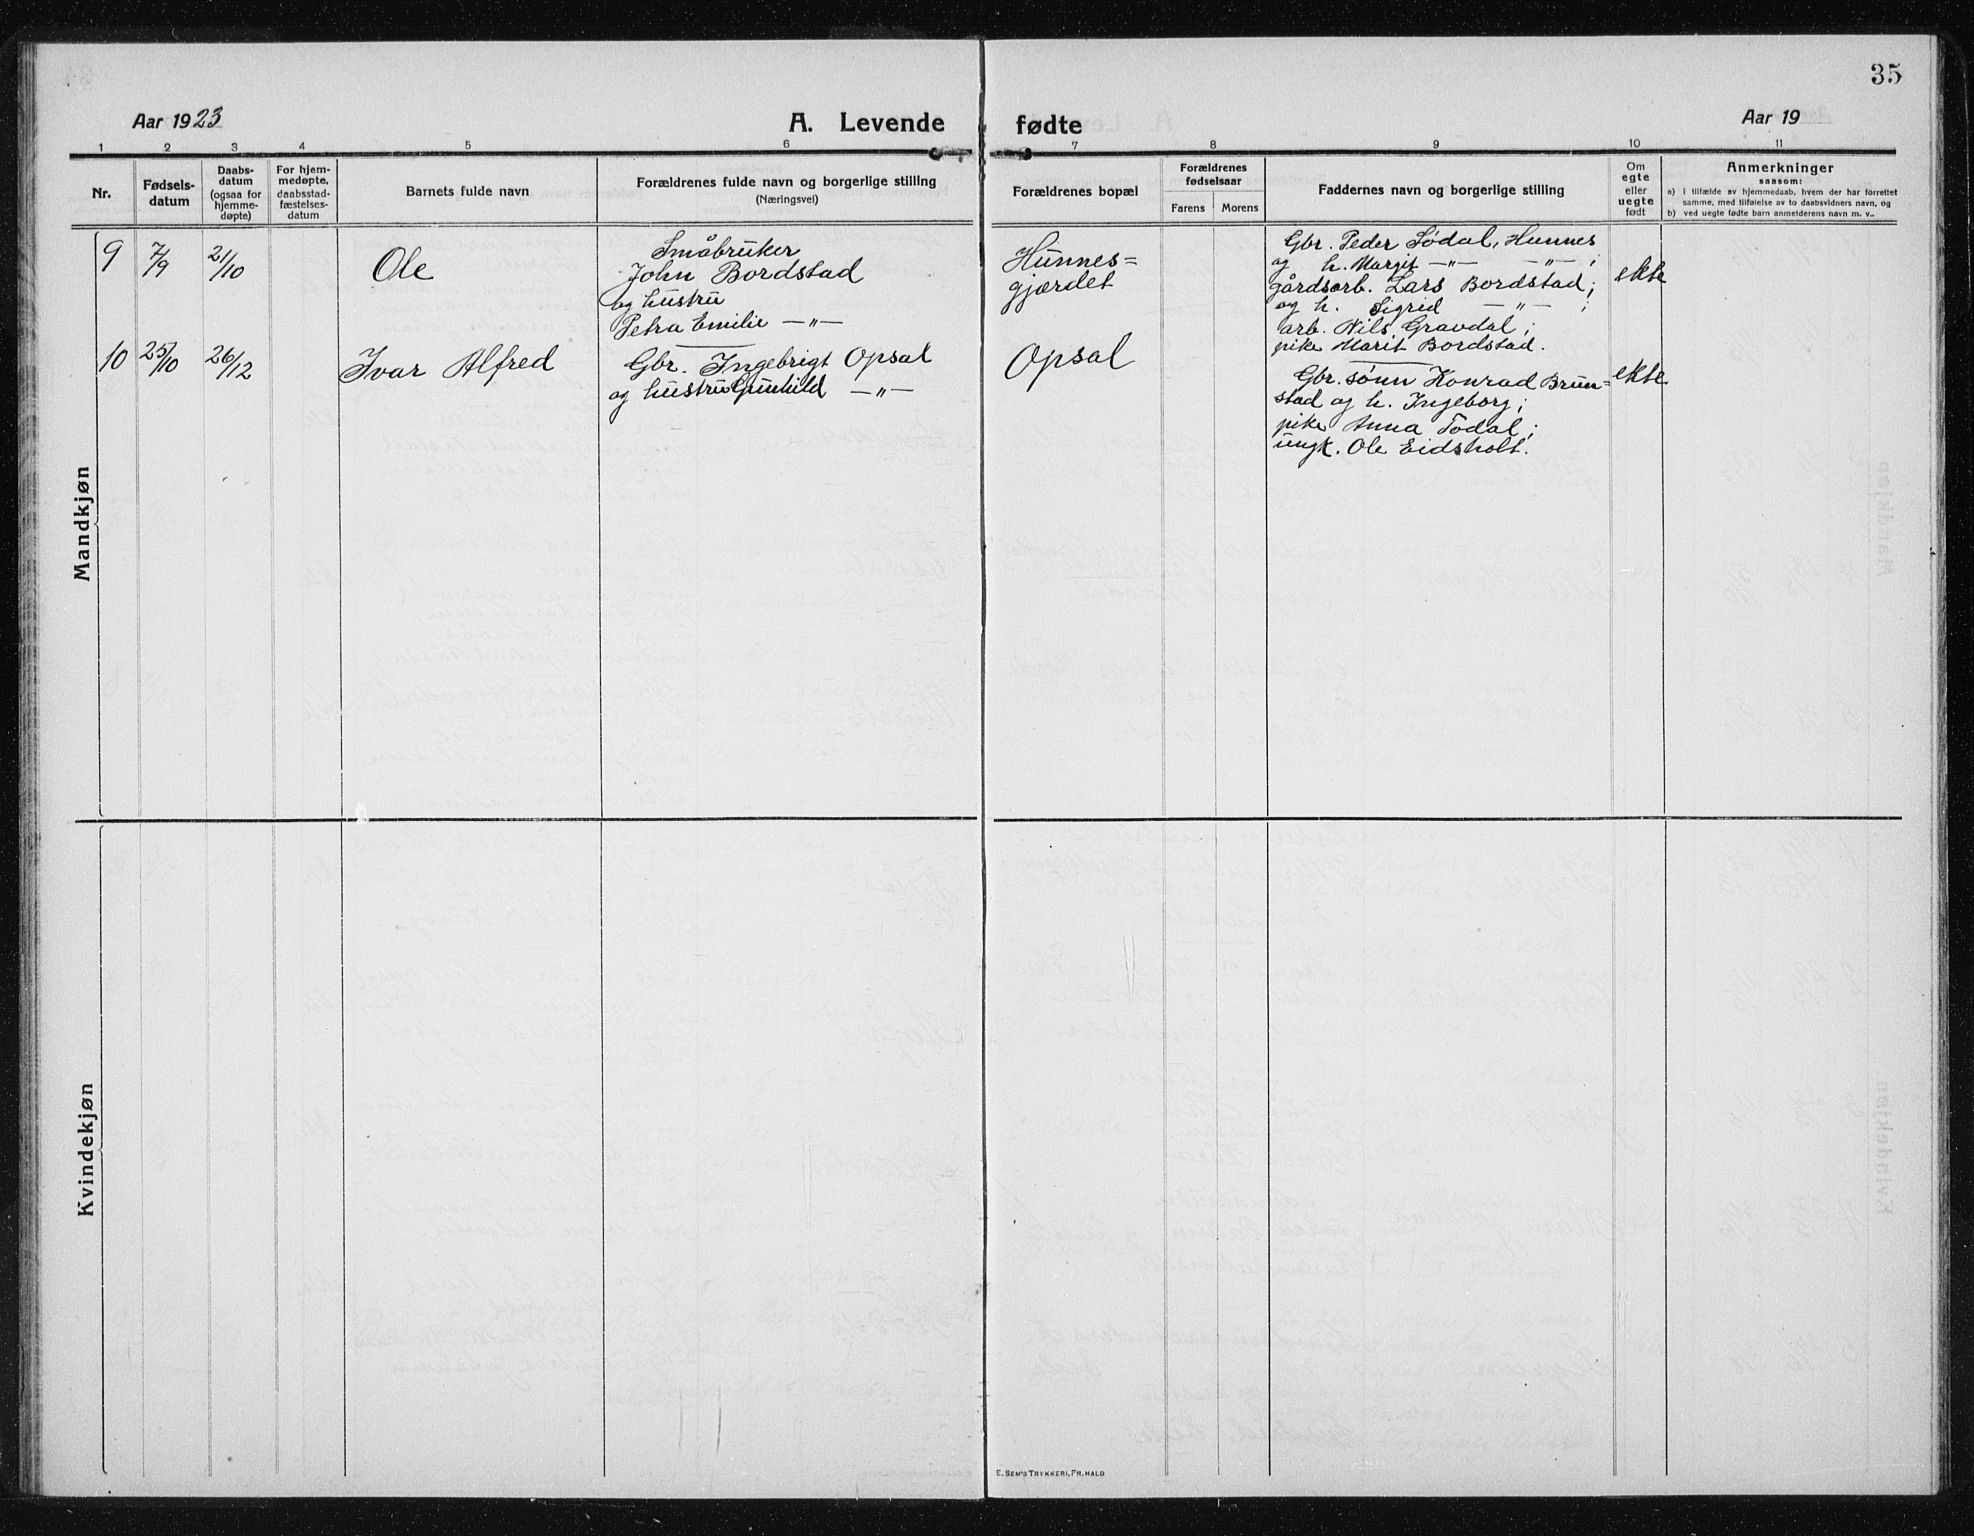 35
Aar 1923
A. Levende
fødte
Aar 19
1 2 3 4 5 6 7 8 9 10 11
Nr.
Fødsels-
datum
Daabs-
datum
(ogsaa for
hjemme-
døpte)
For hjem-
medøpte,
daabsstad-
fæstelses-
datum
Barnets fulde navn
Forældrenes fulde navn og borgerlige stilling
(Næringsvei)
Forældrenes bopæl
Forældrenes
fødselsaar
Farens Morens
Faddernes navn og borgerlige stilling
Om
egte
eller
uegte
født
Anmerkninger
saasom:
a) i tilfælde av hjemmedaab, hvem der har forrettet
samme, med tilføielse av to daabsvidners navn, og
b) ved uegte fødte barn anmelderens navn m. v..
Mandkjøn
9 7/9 21/10 Ole
Småbruker
John Bordstad
og hustru
Petra Emilie —"—
Hunnes=
gjærdet
Gbr. Peder Södal, Hunnes
og h. Margit —"— —"— ;
gårdsarb. Lars Bordstad;
og h. Sigrid —"— ;
arb. Nils Gravdal;
pike Marit Bordstad.
ekte
10 25/10 26/12 Ivar Alfred
Gbr. Ingebrigt Opsal
og hustru Gunhild —"—
Opsal
Gbr. sønn Konrad Brun=
stad og h. Ingeborg;
pike Anna Todal;
ungk. Ole Eidsholt.
ekte
Kvindekjøn
E. SEM'S TRYKKERI, FR.HALD